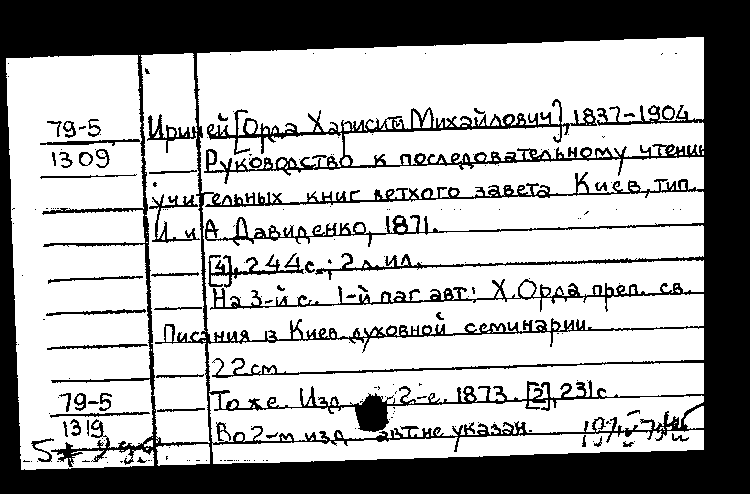 79-5 Ириней [Орда Харисим Михайлович], 1837-1904
1309 Руководство к последовательному чтению
учительных книг ветхого завета Киев, тип.
И. и А. Давиденко, 1871.
[4], 244 с.; 2 л. ил.
На 3-й с. 1-й паг авт.: Х. Орда, преп. св.
Писания в Киев. духовной семинарии.
22 см.
79-5 То же. Изд. 2-е. 1873. [2], 231 с.
1319 Во 2-м изд авт. не указан.